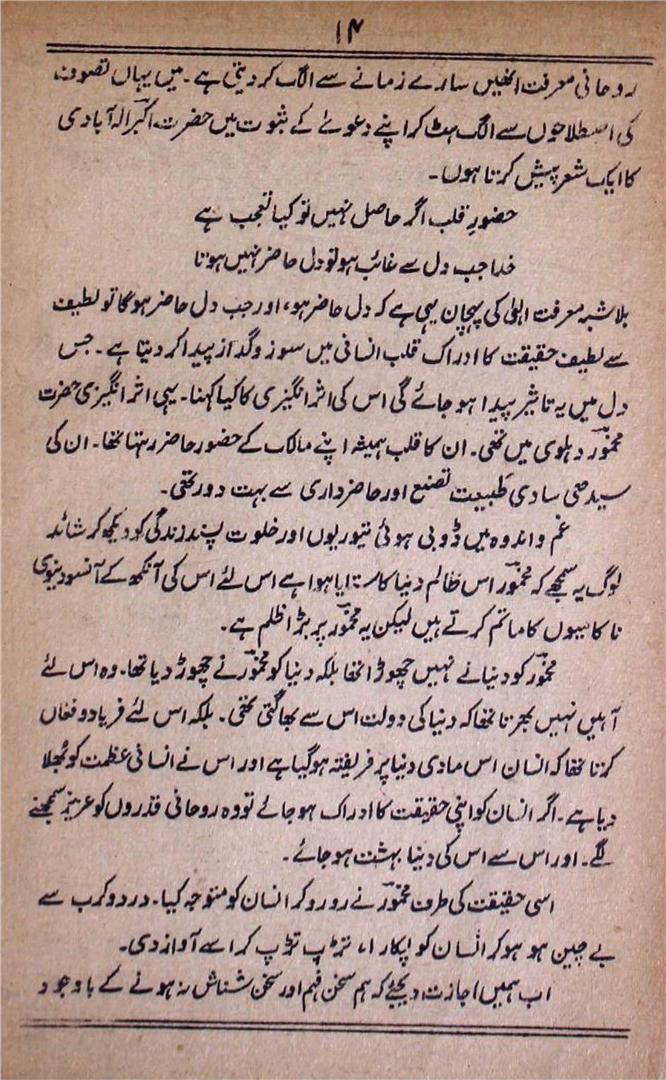 ۱۴
روحانی معرفت انھیں سارے زمانے سے الگ کر دیتی ہے۔ میں یہاں تصوف
کی اصطلاحوں سے الگ ہٹ کر اپنے دعوئے کے ثبوت میں حضرت اکبرؔ الہ آبادی
کا ایک شعر پیش کرتا ہوں۔
حضورِ قلب اگر حاصل نہیں تو کیا تعجب ہے
خدا جب دل سے غائب ہو تو دل حاضر نہیں ہوتا
بلاشبہ معرفت الٰہی کی پہچان یہی ہے کہ دل حاضر ہو، اور جب دل حاضر ہوگا تو لطیف
سے لطیف حقیقت کا ادراک قلب انسانی میں سوز و گداز پیدا کر دیتا ہے۔ جس
دل میں یہ تاثیر پیدا ہو جائے گی اس کی اثر انگیزی کا کیا کہنا۔ یہی اثر انگیزی حضرت
مخمورؔ دہلوی میں تھی۔ ان کا قلب ہمیشہ اپنے مالک کے حضور حاضر رہتا تھا۔ ان کی
سیدھی سادی طبیعت تصنع اور حاضرداری سے بہت دور تھی۔
غم و اندوہ میں ڈوبی ہوئی تیوریوں اور خلوت پسند زندگی کو دیکھ کر شائد
لوگ یہ سمجھے کہ مخمورؔ اس ظالم دنیا کا ستایا ہوا ہے اس لئے اس کی آنکھ کے آنسو دنیوی
ناکامیوں کا ماتم کرتے ہیں لیکن یہ مخمورؔ پر بڑا ظلم ہے۔
مخمورؔ کو دنیا نے نہیں چھوڑا تھا بلکہ دنیا کو مخمورؔ نے چھوڑ دیا تھا۔ وہ اس لئے
آہیں نہیں بھرتا تھا کہ دنیا کی دولت اس سے بھاگتی تھی۔ بلکہ اس لئے فریاد و فغاں
کرتا تھا کہ انسان اس مادی دنیا پر فریفتہ ہو گیا ہے اور اس نے انسانی عظمت کو بُھلا
دیا ہے۔ اگر انسان کو اپنی حقیقت کا ادراک ہو جائے تو وہ روحانی قدروں کو عزیز سمجھنے
لگے۔ اور اس سے اس کی دنیا بہشت ہو جائے۔
اسی حقیقت کی طرف مخمورؔ نے رو رو کر انسان کو متوجہ کیا۔ درد و کرب سے
بے چین ہو ہو کر انسان کو پکارا، تڑپ تڑپ کر اسے آواز دی۔
اب ہمیں اجازت دیجئے کہ ہم سخن فہم اور سخن شناش نہ ہونے کے باوجود